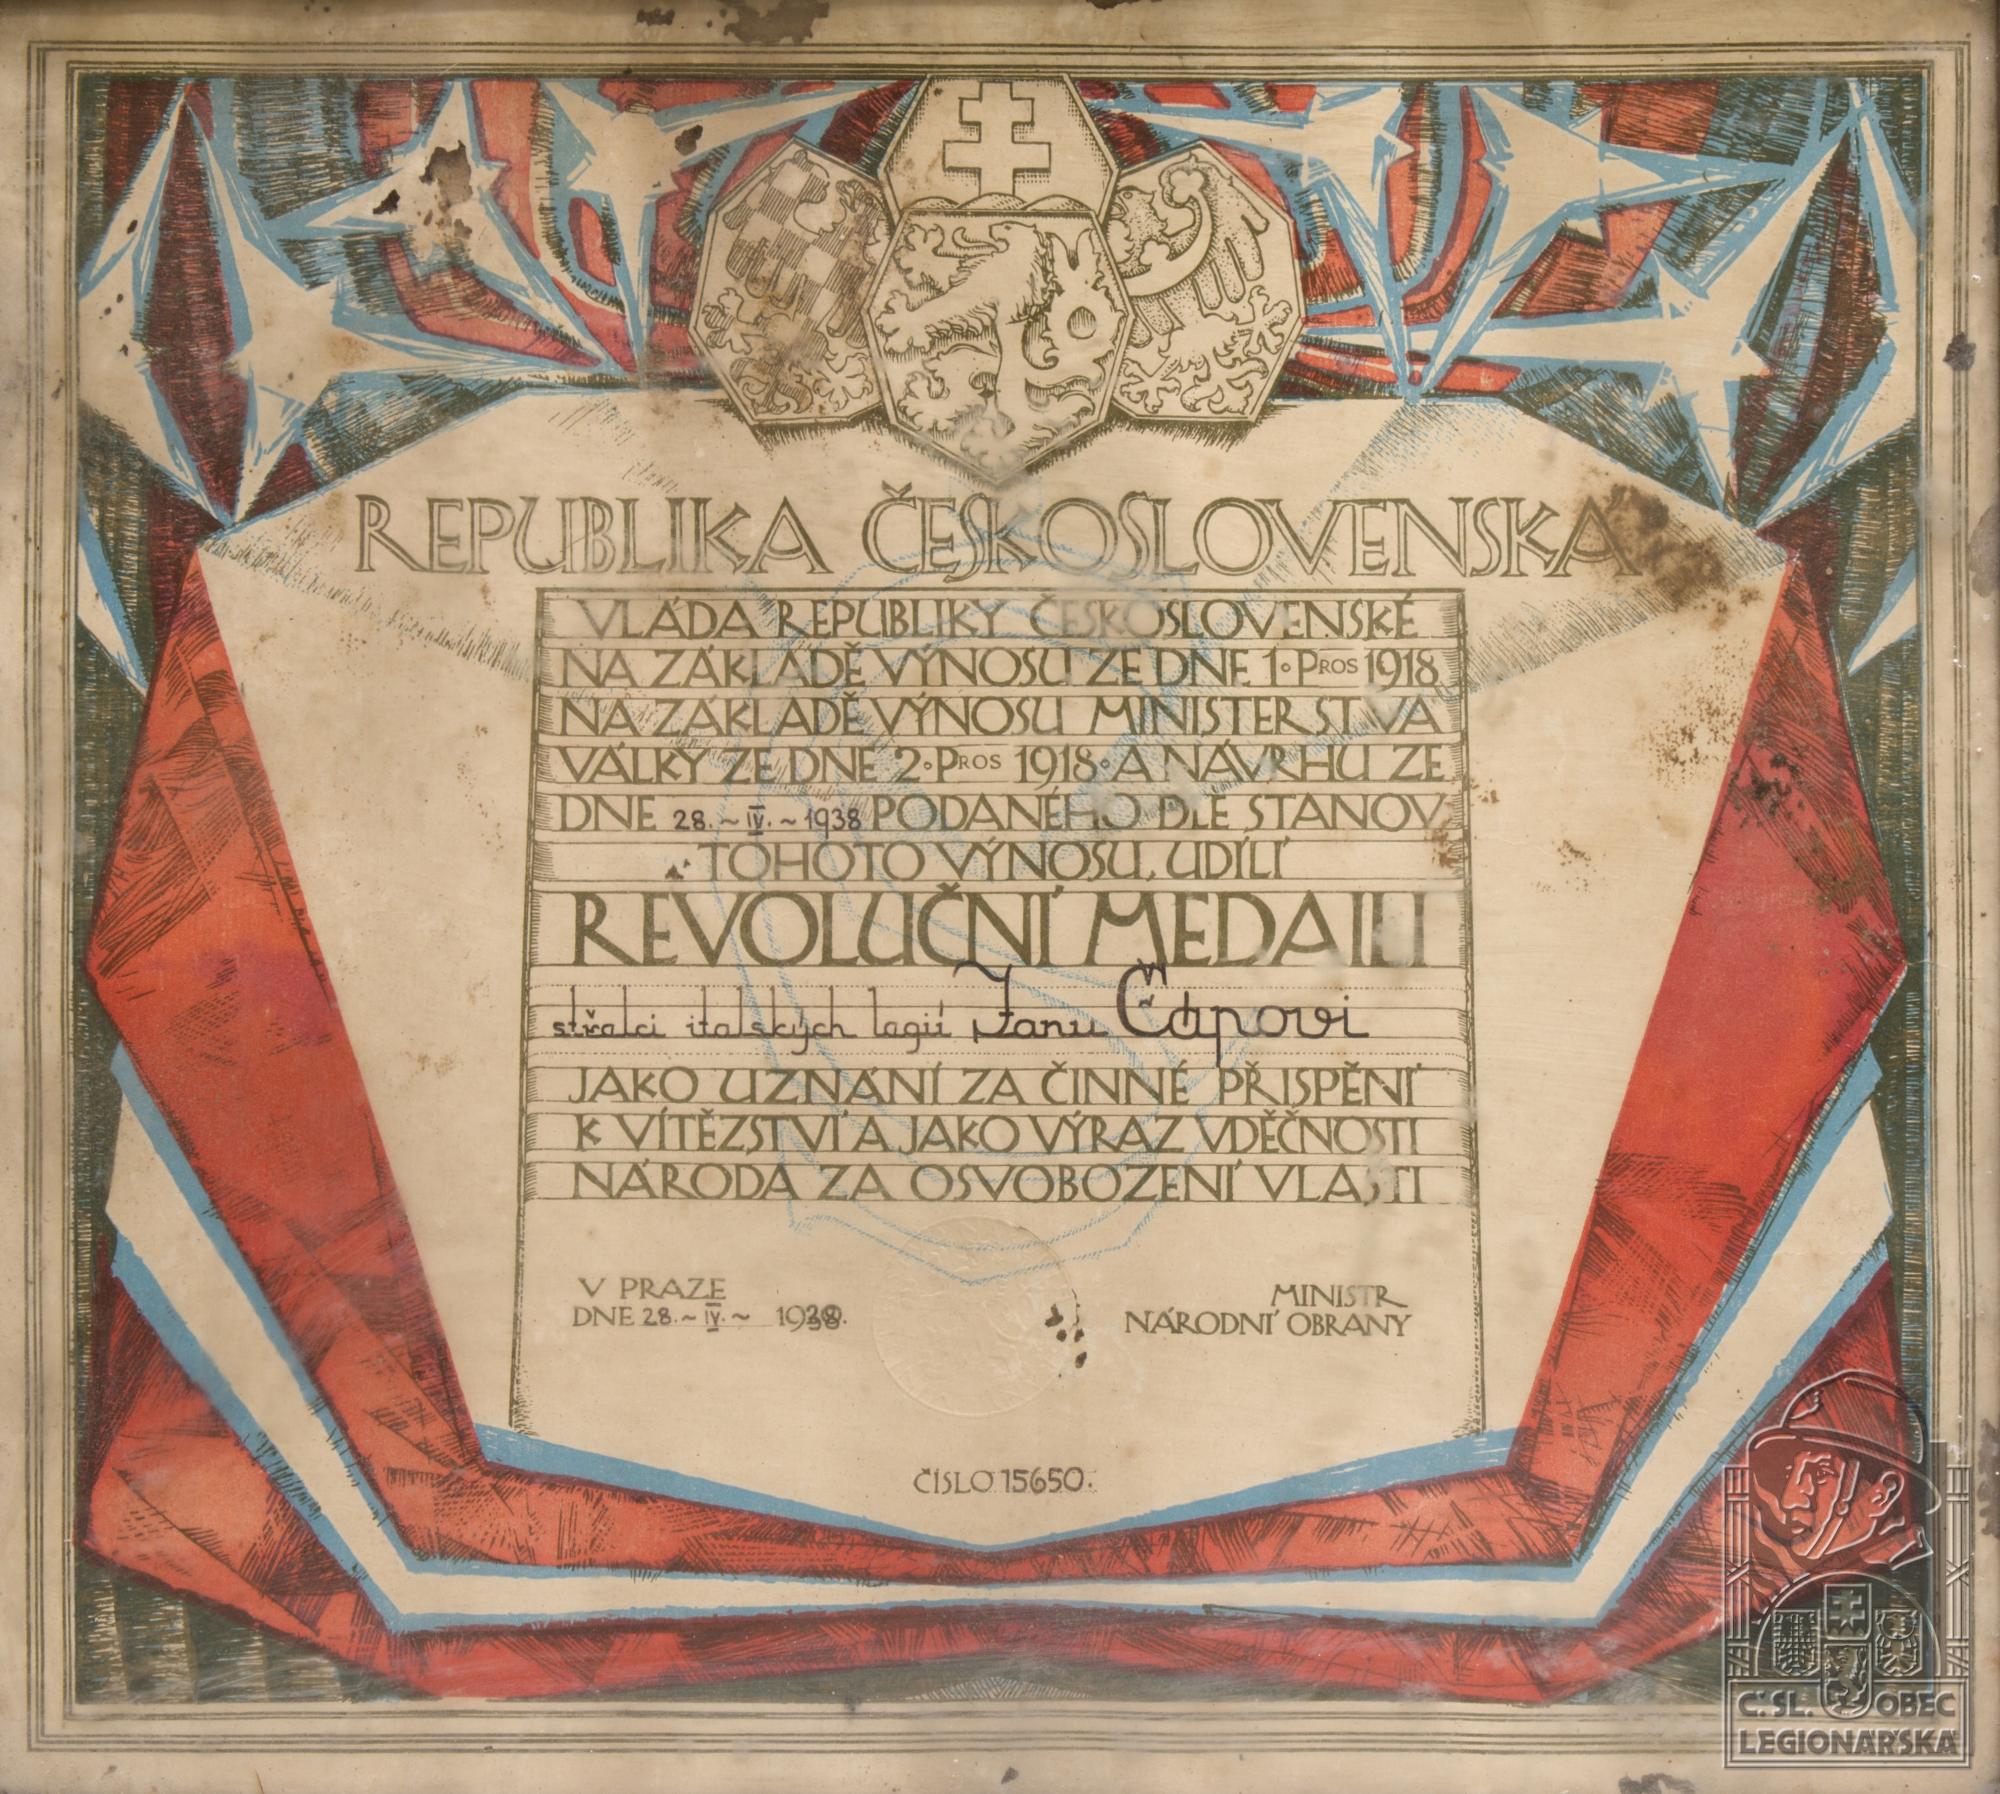 REPUBLIKA ČESKOSLOVENSKA
VLÁDA REPUBLIKY ČESKOSLOVENSKÉ
NA ZÁKLADĚ VÝNOSU ZE DNE 1. PROS 1918
NA ZÁKLADĚ VÝNOSU MINISTERSTVA
VÁLKY ZE DNE 2. PROS 1918. A NÁVRHU ZE
DNE 28. ~ IV. ~ 1938 PODANÉHO DLE STANOV
TOHOTO VÝNOSU, UDÍLÍ
REVOLUČNÍ MEDAILI
střelci italských legií Janu Čápovi
JAKO UZNÁNÍ ZA ČINNÉ PŘISPĚNÍ
K VÍTĚZSTVÍ A JAKO VÝRAZ VDĚČNOSTI
NÁRODA ZA OSVOBOZENÍ VLASTI
V PRAZE
DNE 28. ~ IV. ~ 1938.
MINISTR
NÁRODNÍ OBRANY
ČÍSLO 15650.
Č. SL. OBEC
LEGIONÁŘSKÁ